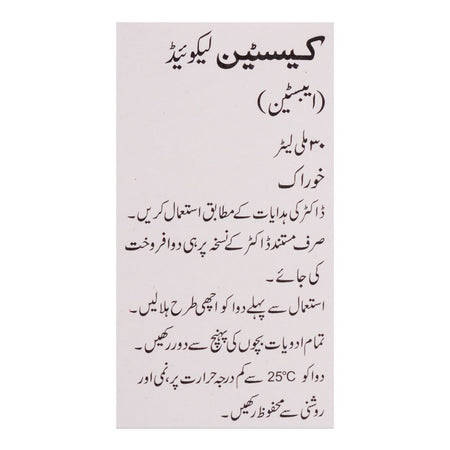 کیسٹین لیکوئیڈ
(ایبسٹین)
۳۰ ملی لیٹر
خوراک
ڈاکٹر کی ہدایات کے مطابق استعمال کریں۔
صرف مستند ڈاکٹر کے نسخہ پر ہی دوا فروخت
کی جائے۔
استعمال سے پہلے دوا کو اچھی طرح ہلالیں۔
تمام ادویات بچوں کی پہنچ سے دور رکھیں۔
دوا کو 25°C سے کم درجہ حرارت پر، نمی اور
روشنی سے محفوظ رکھیں۔